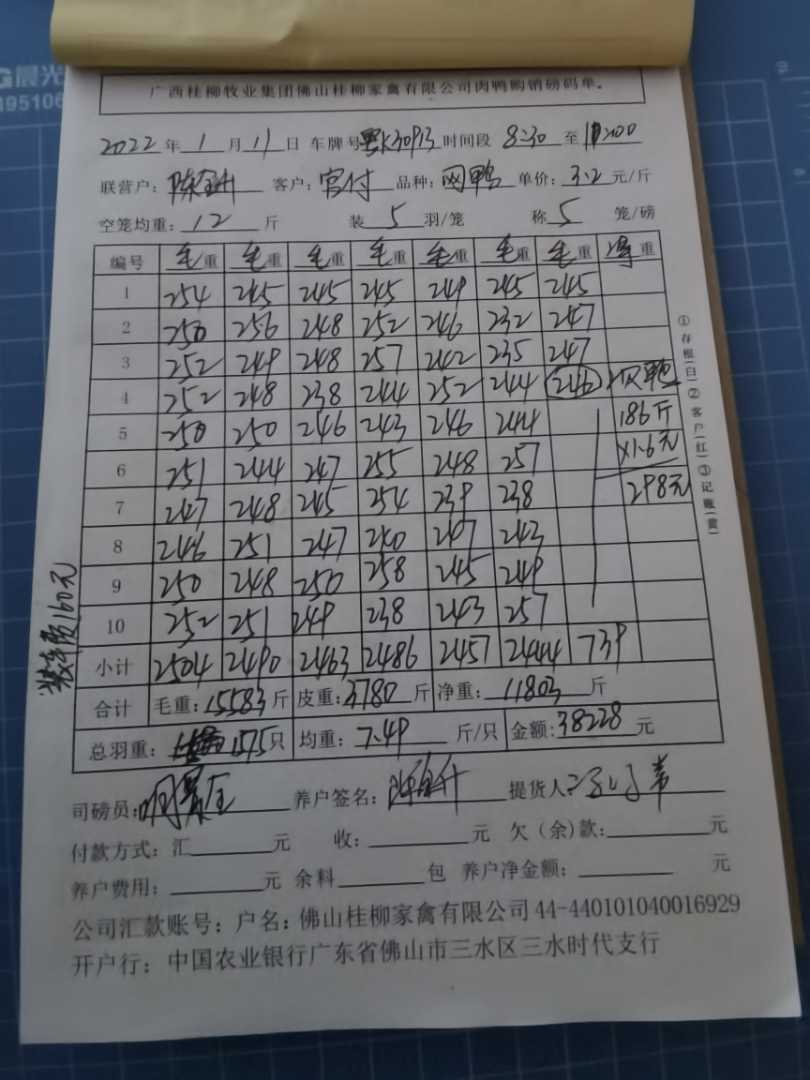 晨光
广西桂柳牧业集团佛山桂柳家禽有限公司肉鸭购销磅码单。
2022 年 1 月 11 日 车牌号 粤K30913 时间段 8:30 至
联营户: 客户: 官付 品种: 网鸭 单价: 3.2 元/斤
空笼均重: 12 斤 装 5 羽/笼 称 5 笼/磅
编号 毛重 毛重 毛重 毛重 毛重 毛重 毛重 重
1 254 245 245 245 249 245 245
2 250 256 248 252 246 232 247
3 252 249 248 257 242 235 247
4 252 248 238 244 252 244 246 鸭
5 250 250 246 243 246 244 186斤
6 251 244 247 255 248 257 ×1.6元
7 247 248 245 254 239 238 298元
8 246 251 247 240 247 243
9 250 248 250 258 245 249
10 252 251 249 238 243 257
小计 2504 2490 2463 2486 2457 2444 739
合计 毛重: 15583 斤 皮重: 3780 斤 净重: 11803 斤
总羽重: 1575 只 均重: 7.49 斤/只 金额: 38228 元
装车费160元
①存根(白)②客户(红)③记账(黄)
司磅员: 养户签名: 提货人:
付款方式: 汇 元 收: 元 欠(余)款: 元
养户费用: 元 余料 包 养户净金额: 元
公司汇款账号: 户名: 佛山桂柳家禽有限公司 44-440101040016929
开户行: 中国农业银行广东省佛山市三水区三水时代支行